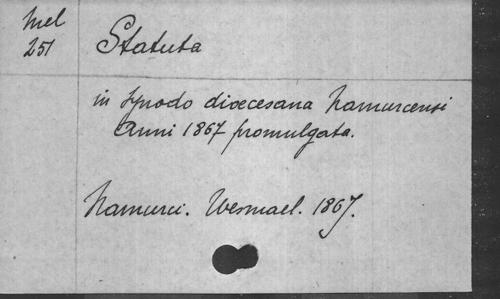 Mel
251
Statuta
in Synodo dioecesana Namurcensi
Anni 1867 promulgata.
Namurci. Wesmael. 1867.